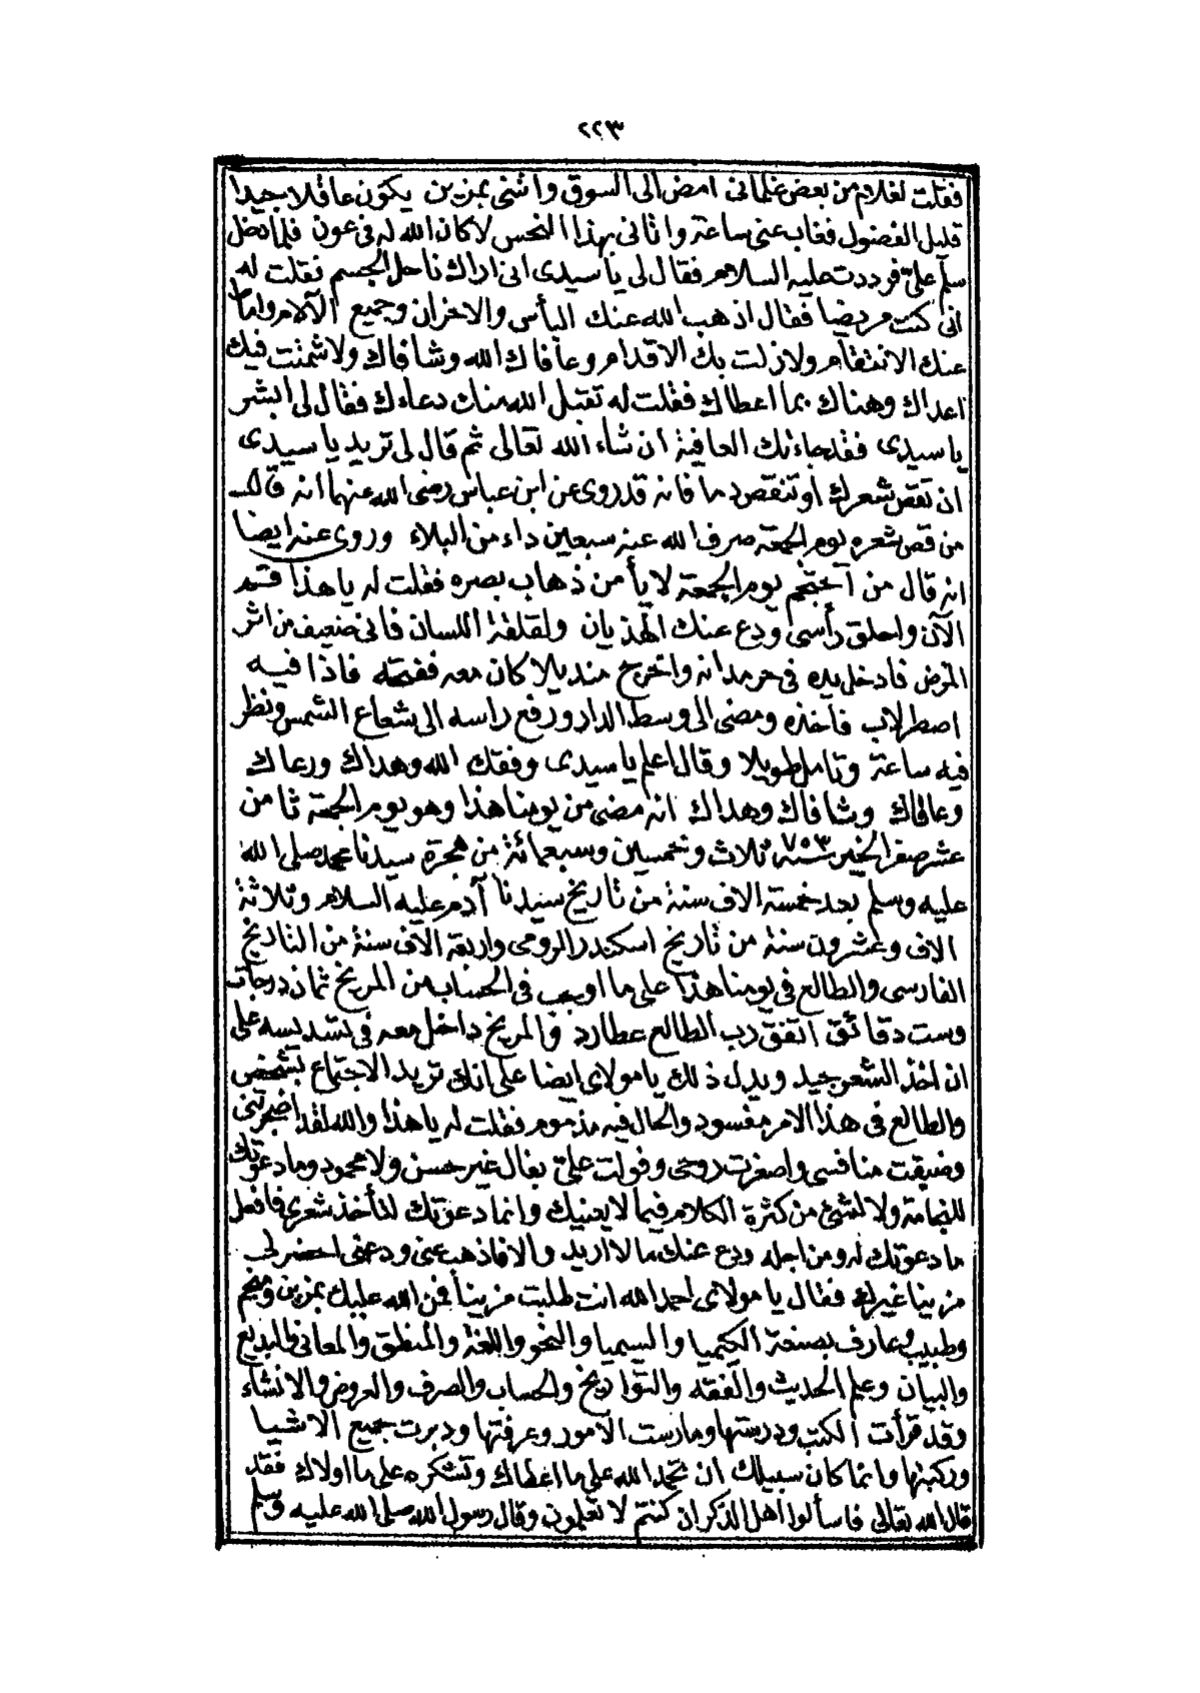 ٢٢٣
فقلت لغلام من بعض غلمانى امض الى السوق وائتنى بمزين يكون عاقلا جيدا
قليل الفضول فغاب عنى ساعة واتانى بهذا النحس لا كان الله له فى عون فلما دخل
سلم علىّ فرددت عليه السلام فقال لى يا سيدى انى اراك ناحل الجسم فقلت له
انى كنت مريضا فقال اذهب الله عنك البأس والاحزان وجميع الآلام واماط
عنك الانتقام ولا زلت بك الاقدام وعافاك الله وشافاك ولا شمتت فيك
اعداك وهناك بما اعطاك فقلت له تقبل الله منك دعاءك فقال لى ابشر
يا سيدى فقد جاءتك العافية ان شاء الله تعالى ثم قال لى تريد يا سيدى
ان تقص شعرك او تنقص دما فانه قد روى عن ابن عباس رضى الله عنهما انه قال
من قص شعره يوم الجمعة صرف الله عنه سبعين داء من البلاء وروى عنه ايضا
انه قال من احتجم يوم الجمعة لا يأمن ذهاب بصره فقلت له يا هذا قم
الآن واحلق رأسى ودع عنك الهذيان ولقلقة اللسان فانى ضعيف من اثر
المرض فادخل يده فى حرمدانه واخرج منديلا كان معه ففتحه فاذا فيه
اصطرلاب فأخذه ومضى الى وسط الدار ورفع راسه الى شعاع الشمس ونظر
فيه ساعة وتامل طويلا وقال اعلم يا سيدى وفقك الله وهداك ورعاك
وعافاك وشافاك وهداك انه مضى من يومنا هذا وهو يوم الجمعة ثامن
عشر صفر الخير سنة ٧٥٣ ثلاث وخمسين وسبعمائة من هجرة سيدنا محمد صلى الله
عليه وسلم بعد خمسة الاف سنة من تاريخ سيدنا آدم عليه السلام وثلاثة
الاف وعشرون سنة من تاريخ اسكندر الرومى واربعة الآف سنة من التاريخ
الفارسى والطالع فى يومنا هذا على ما اوجب فى الحساب من المريخ ثمان درجات
وست دقائق اتفق رب الطالع عطارد والمريخ داخل معه فى تسديسه على
ان اخذ الشعر جيد ويدل ذلك يا مولاى ايضا على انك تريد الاجتماع بشخص
والطالع فى هذا الامر مفسود والحال فيه مذموم فقلت له يا هذا والله لقد اضجرتنى
وضيقت منافسى واصغرت روحى وفولت علىّ بفال غير حسن ولا محمود وما دعوتك
للنجامة ولا لشئ من كثرة الكلام فيما لا يعنيك وانما دعوتك لتأخذ شعرى فافعل
ما دعوتك له ومن اجله ودع عنك ما لا اريد والا فاذهب عنى ودعنى احضر لى
مزينا غيرك فقال يا مولاى احمد الله انت طلبت مزينا فمن الله عليك بمزين ومنجم
وطبيب وعارف بصنعة الكيميا والسيميا والنحو واللغة والمنطق والمعانى والبديع
والبيان وعلم الحديث والفقه والتواريخ والحساب والصرف والعروض والانشاء
وقد قرأت الكتب ودرستها ومارست الامور وعرفتها ودبرت جميع الاشيا
وركبتها وانما كان سبيلك ان تحمد الله على ما اعطاك وتشكره على ما اولاك فقد
قال الله تعالى فاسألوا اهل الذكر ان كنتم لا تعلمون وقال رسول الله صلى الله عليه وسلم